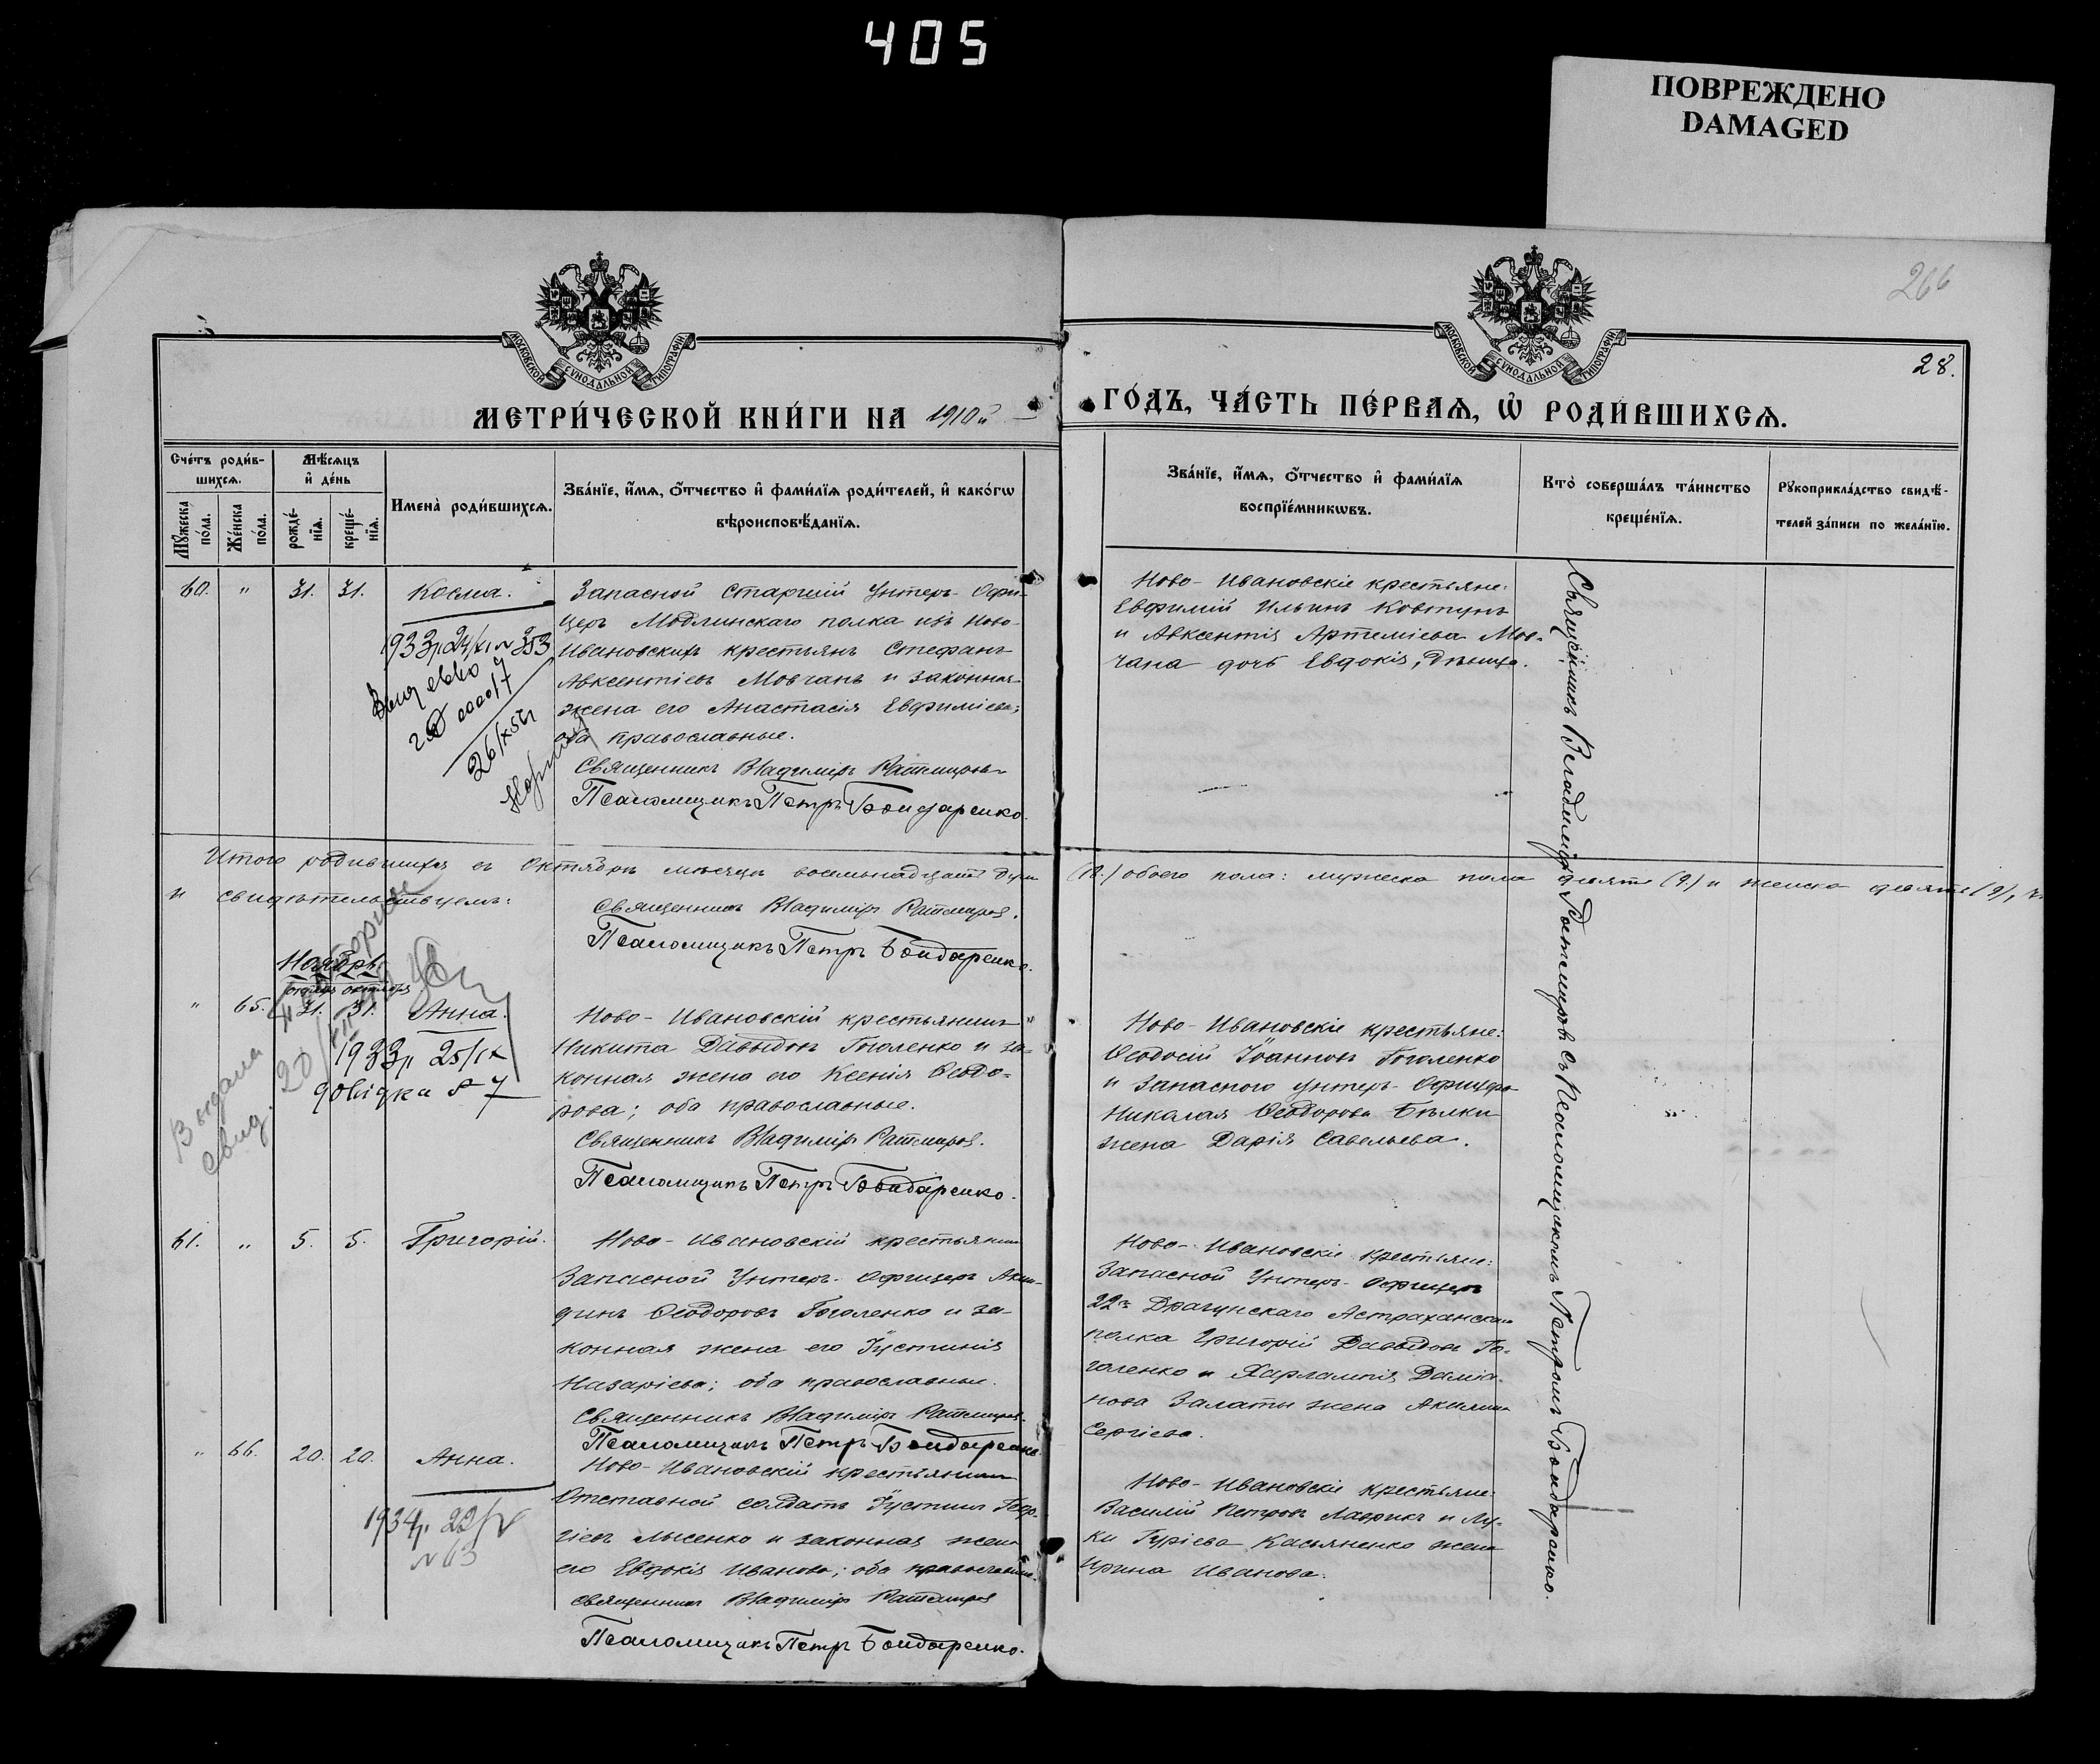 405
ПОВРЕЖДЕНО
DAMAGED
266
28.
МОСКОВСКОЙ СѴНОДАЛЬНОЙ ТИПОГРАФІИ
МОСКОВСКОЙ СѴНОДАЛЬНОЙ ТИПОГРАФІИ
МЕТРИ́ЧЕСКОЙ КНИ́ГИ НА 1910й
ГО́ДЪ, ЧА́СТЬ ПЕ́РВАѦ, Ѡ҆ РОДИ́ВШИХСѦ.
Сче́тъ роди́в-
шихсѧ.
Мѣ́сѧцъ
и҆ де́нь
Мꙋ́жеска по́ла.
Же́нска по́ла.
рожде́-нїѧ.
креще́-нїѧ.
Имена̀ роди́вшихсѧ.
Зва́нїе, и҆́мѧ, ѻ҆́тчество и҆ фами́лїѧ роди́телей, и҆ како́гѡ
вѣроисповѣ́данїѧ.
Зва́нїе, и҆́мѧ, ѻ҆́тчество и҆ фами́лїѧ
воспрїе́мникѡвъ.
Кто̀ соверша́лъ та́инство
креще́нїѧ.
Рꙋкоприкла́дство свидѣ́-
телей за́писи по жела́нїю.
60. " 31. 31. Косма.
Запасной Старшій Унтеръ-Офи-
церъ Модлинскаго полка изъ Ново-
Ивановскихъ крестьянъ Стефанъ
Авксентіевъ Мовчанъ и законная
жена его Анастасія Евфиміева;
оба православные.
Священникъ Владиміръ Ратмировъ
Псаломщикъ Петръ Бондаренко.
1933р. 24/XI N 353
26/X 56г
Ново-Ивановскіе крестьяне:
Евфимій Ильинъ Ковтунъ
и Авксентія Артеміева Мов-
чана дочь Евдокія, дѣвица.
Священникъ Владиміръ Ратмировъ съ Псаломщикомъ Петромъ Бондаренко.
Итого родившихся въ Октябрѣ мѣсяцѣ восемнадцать душъ
(18.) обоего пола: мужеска пола девять (9.) и женска девять (9),
и свидѣтельствуемъ:
Священникъ Владиміръ Ратмировъ.
Псаломщикъ Петръ Бондаренко.
Ноябрь
октябрь
" 65. 31. 31. Анна.
1933р. 25/IX
довідка 87
Выдана
свид. 20/III
Ново-Ивановскій крестьянинъ
Никита Давыдовъ Гоголенко и за-
конная жена его Ксенія Ѳеодо-
рова; оба православные.
Священникъ Владиміръ Ратмировъ.
Псаломщикъ Петръ Бондаренко.
Ново-Ивановскіе крестьяне:
Ѳеодосій Іоанновъ Гоголенко
и Запаснаго Унтеръ-Офицера
Николая Ѳеодорова Бѣлки
жена Дарія Савельева.
61. " 5. 5. Григорій.
Ново-Ивановскій крестьянинъ
Запасной Унтеръ-Офицеръ Акин-
динъ Ѳеодоровъ Гоголенко и за-
конная жена его Іустинія
Назаріева; оба православные.
Священникъ Владиміръ Ратмировъ
Псаломщикъ Петръ Бондаренко.
Ново-Ивановскіе крестьяне:
Запасной Унтеръ-Офицеръ
22го Драгунскаго Астраханскаго
полка Григорій Давыдовъ Го-
голенко и Харлампія Даміа-
нова Залаты жена Акилина
Сергіева.
" 66. 20. 20. Анна.
1934р. 22/V
N 63
Ново-Ивановскій крестьянинъ
Отставной солдатъ Іустинъ Геор-
гіевъ Лысенко и законная жена
его Евдокія Иванова; оба православные.
Священникъ Владиміръ Ратмировъ
Псаломщикъ Петръ Бондаренко.
Ново-Ивановскіе крестьяне:
Василій Петровъ Лаврикъ и Лу-
ки Гуріева Касьяненко жена
Ирина Иванова.